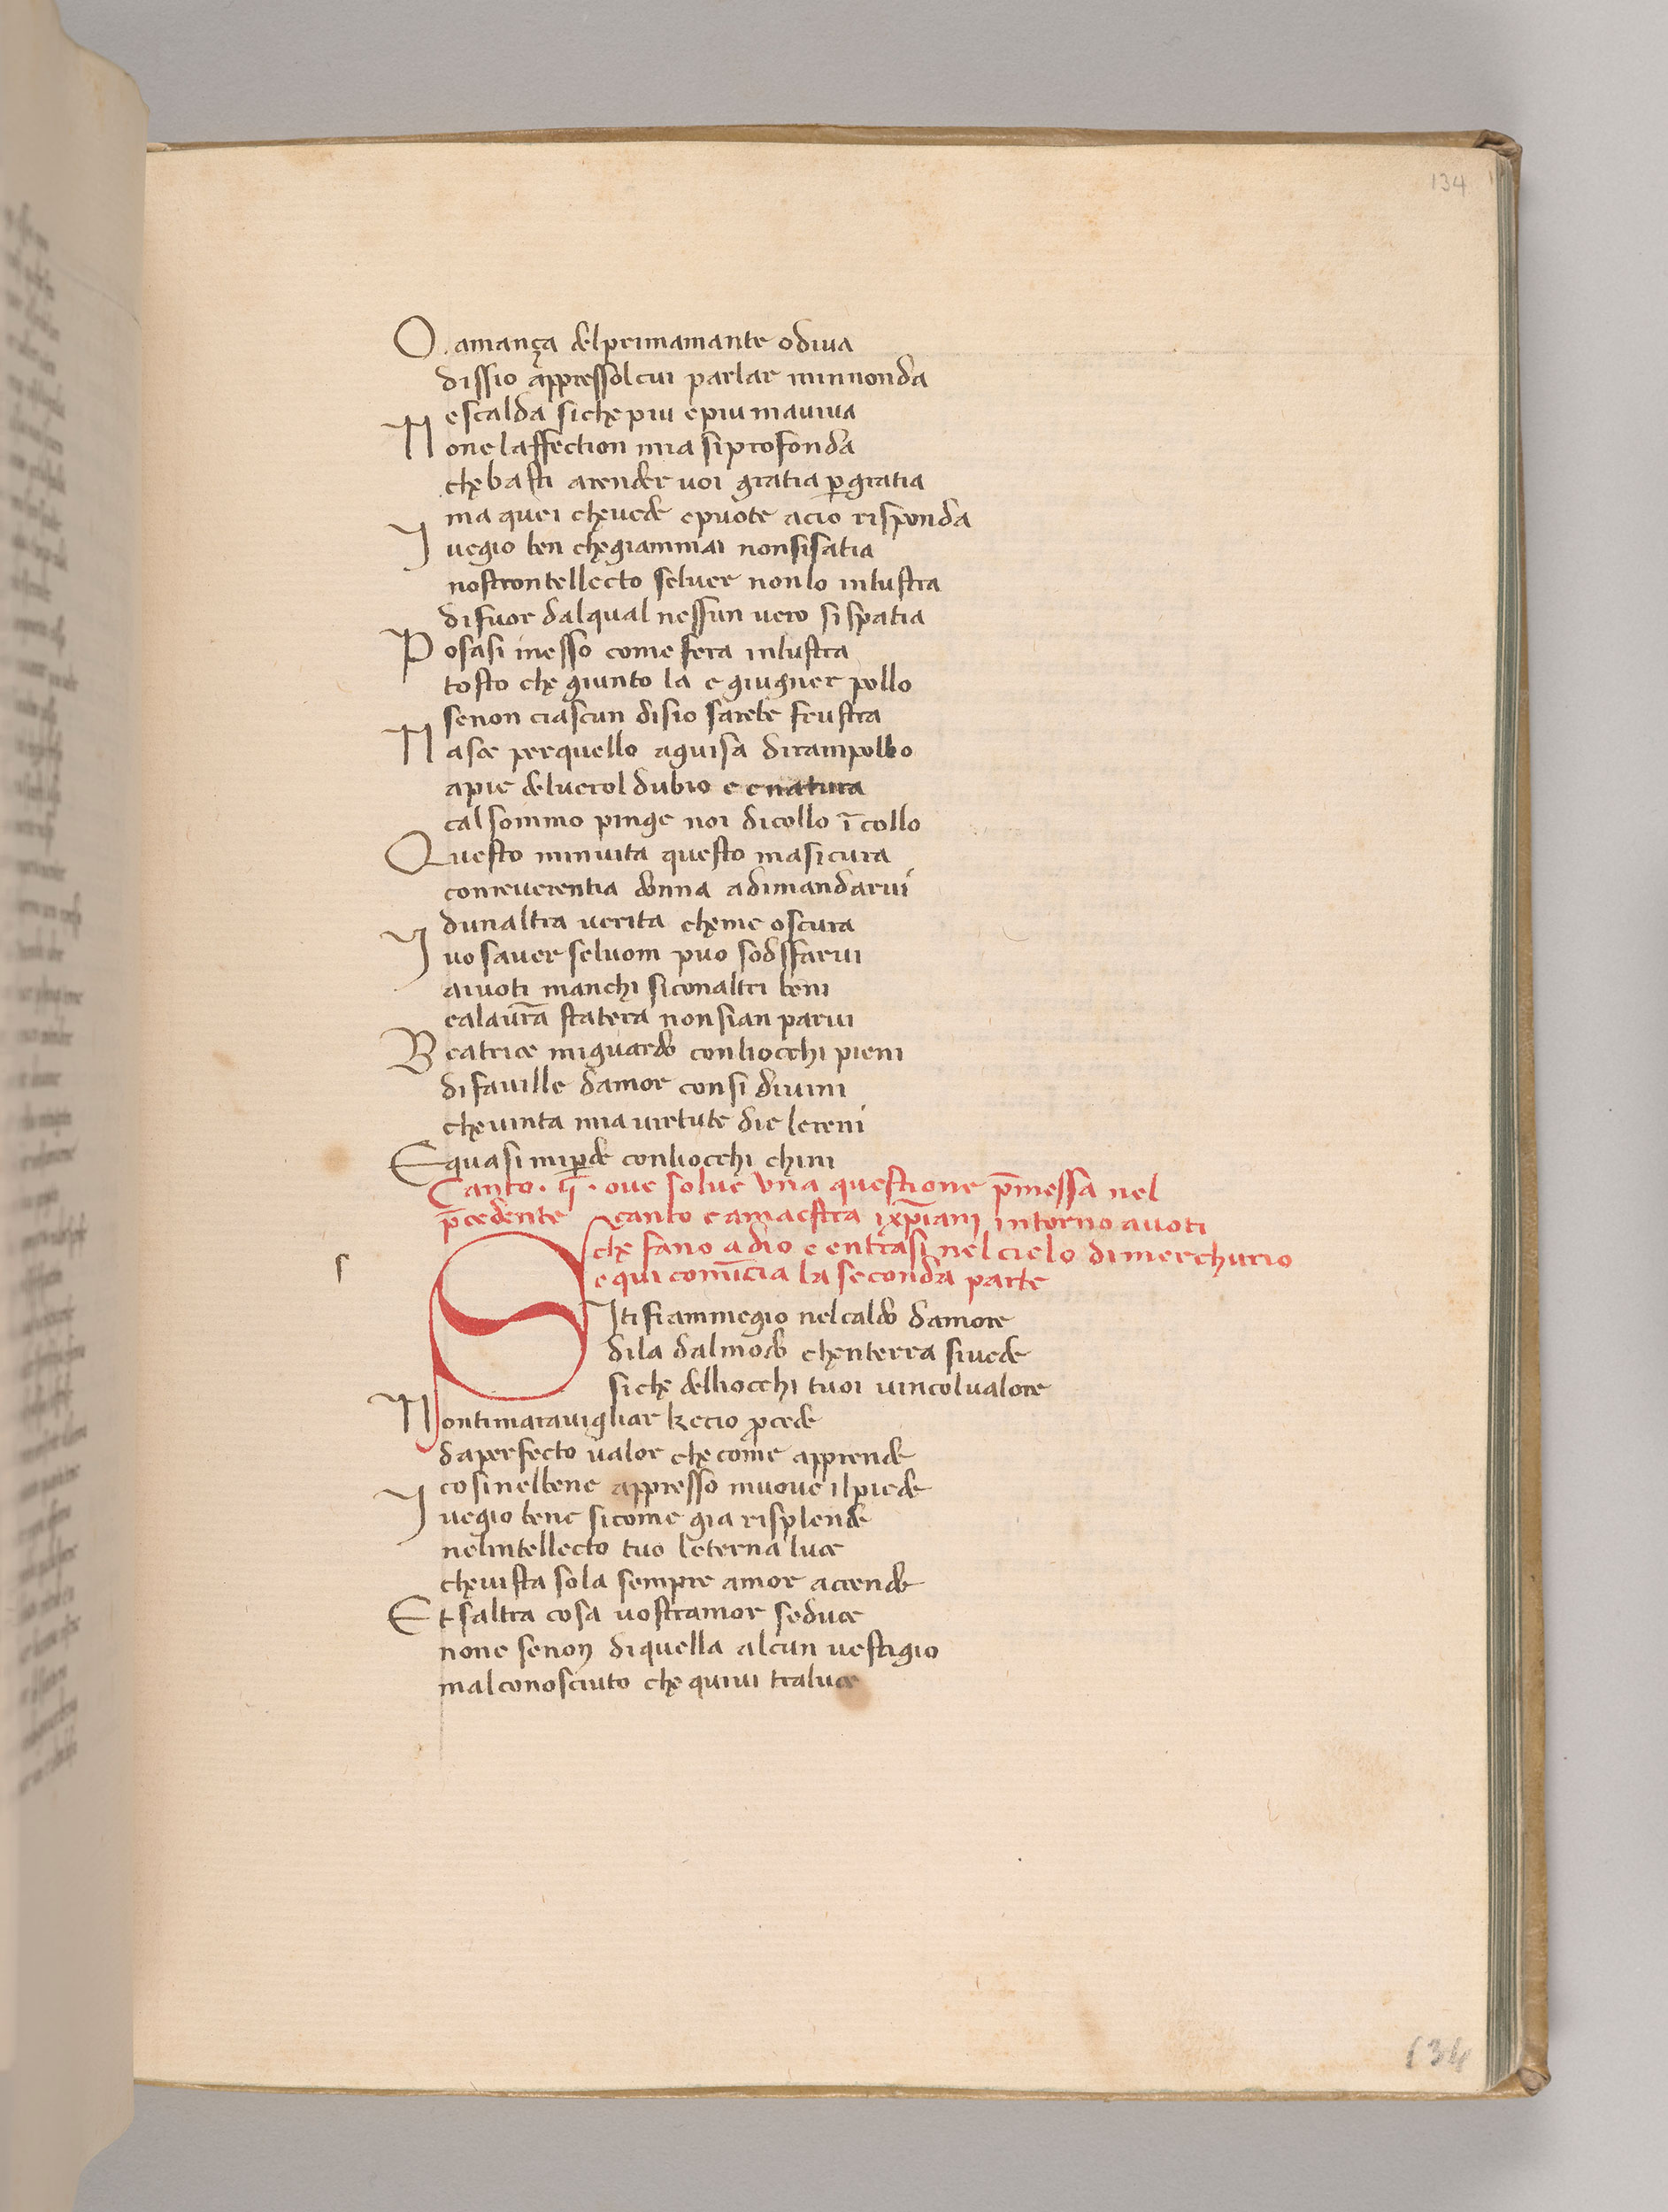 134
O amança delprimamante odiua
dissio appressolcui parlar minnonda
escalda sichę piu epiu mauiua
None laffection mia siprofonda
chębasti arender uoi gratia ꝑgratia
ma quei chęuede epuote acio risponda
I uegio ben chęgiammai nonsisatia
nostrontellecto seluer nonlo inlustra
difuor dalqual nessun uero sispatia
Posasi inesso come fera inlustra
tosto chę giunto la e giugner pollo
senon ciascun disio sarebe frustra
Nasce perquello aguisa dirampollo
apie delueroldubio e enatura
calsommo pinge noi dicollo ī collo
Questo minuita questo masicura
conreuerentia donna adimandarui
dunaltra uerita chęme oscura
I uo sauer seluom puo sodsfarui
aiuoti manchi siconaltri beni
calaur̄a statera nonsian parui
Beatrice miguardo conliocchi pieni
difauille damor consi diuini
chęuinta mia uirtute die lereni
Equasi miꝑde conliocchi chini
Canto . q̄ . oue solue vna questione p̄messa nel
p̄cedente canto e amaestra ixp̄iani intorno auoti
chę fano adio e entrasi nel cielo dimerchurio
e qui comīcia la seconda parte
s
SIti fiammegio nelcaldo damore
dila dalmodo chęnterra siuede
sichę delliocchi tuoi uincolualore
Nontimarauigliar kecio ꝓcede
daperfecto ualor chęcome apprende
cosinelbene appresso muoue ilpiede
I uegio bene sicome gia risplende
nelintellecto tuo leterna luce
chęuista sola sempre amor accende
Et saltra cosa uostramor seduce
none senon diquella alcun uestigio
malconosciuto chę quiui traluce
134